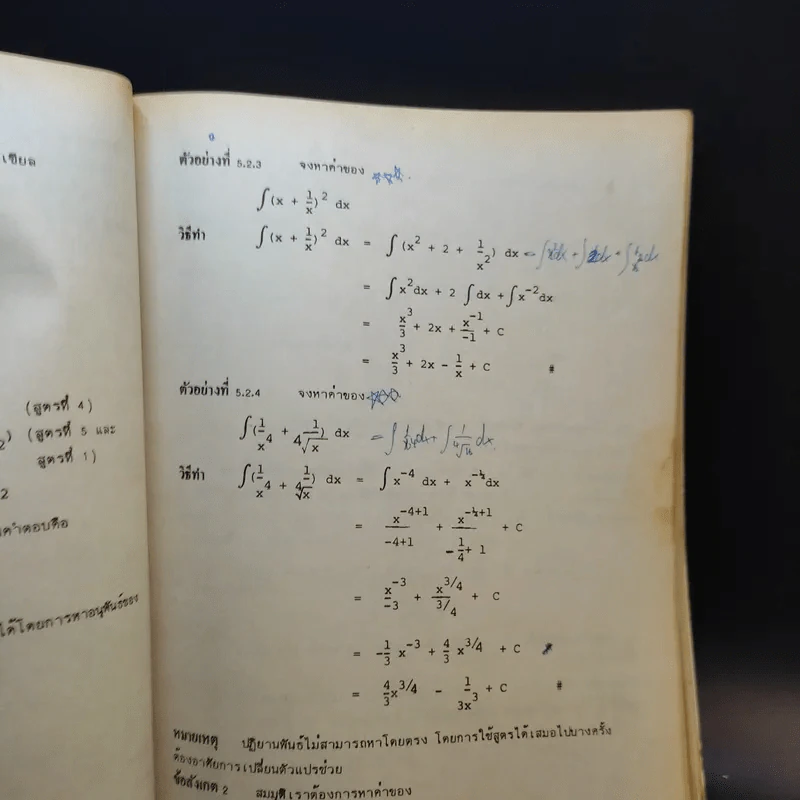 เชียล
(สูตรที่ 4)
(สูตรที่ 5 และ
สูตรที่ 1)
2
คำตอบคือ
ได้โดยการหาอนุพันธ์ของ
ตัวอย่างที่ 5.2.3 จงหาค่าของ
∫(x + 1/x)² dx
วิธีทำ ∫(x + 1/x)² dx = ∫(x² + 2 + 1/x²) dx = ∫x²dx + ∫2dx + ∫1/x² dx
= ∫x²dx + 2 ∫dx + ∫x⁻²dx
= x³/3 + 2x + x⁻¹/-1 + C
= x³/3 + 2x - 1/x + C #
ตัวอย่างที่ 5.2.4 จงหาค่าของ
∫(1/x⁴ + 1/4√x) dx = ∫1/x⁴ dx + ∫1/4√x dx
วิธีทำ ∫(1/x⁴ + 1/4√x) dx = ∫x⁻⁴ dx + x^-¼dx
= x^-4+1/-4+1 + x^-¼+1/-1/4+1 + C
= x⁻³/-3 + x^3/4/3/4 + C
= -1/3 x⁻³ + 4/3 x^3/4 + C
= 4/3 x^3/4 - 1/3x³ + C #
หมายเหตุ ปฏิยานุพันธ์ไม่สามารถหาโดยตรง โดยการใช้สูตรได้เสมอไปบางครั้ง
ต้องอาศัยการเปลี่ยนตัวแปรช่วย
ข้อสังเกต 2 สมมุติเราต้องการหาค่าของ